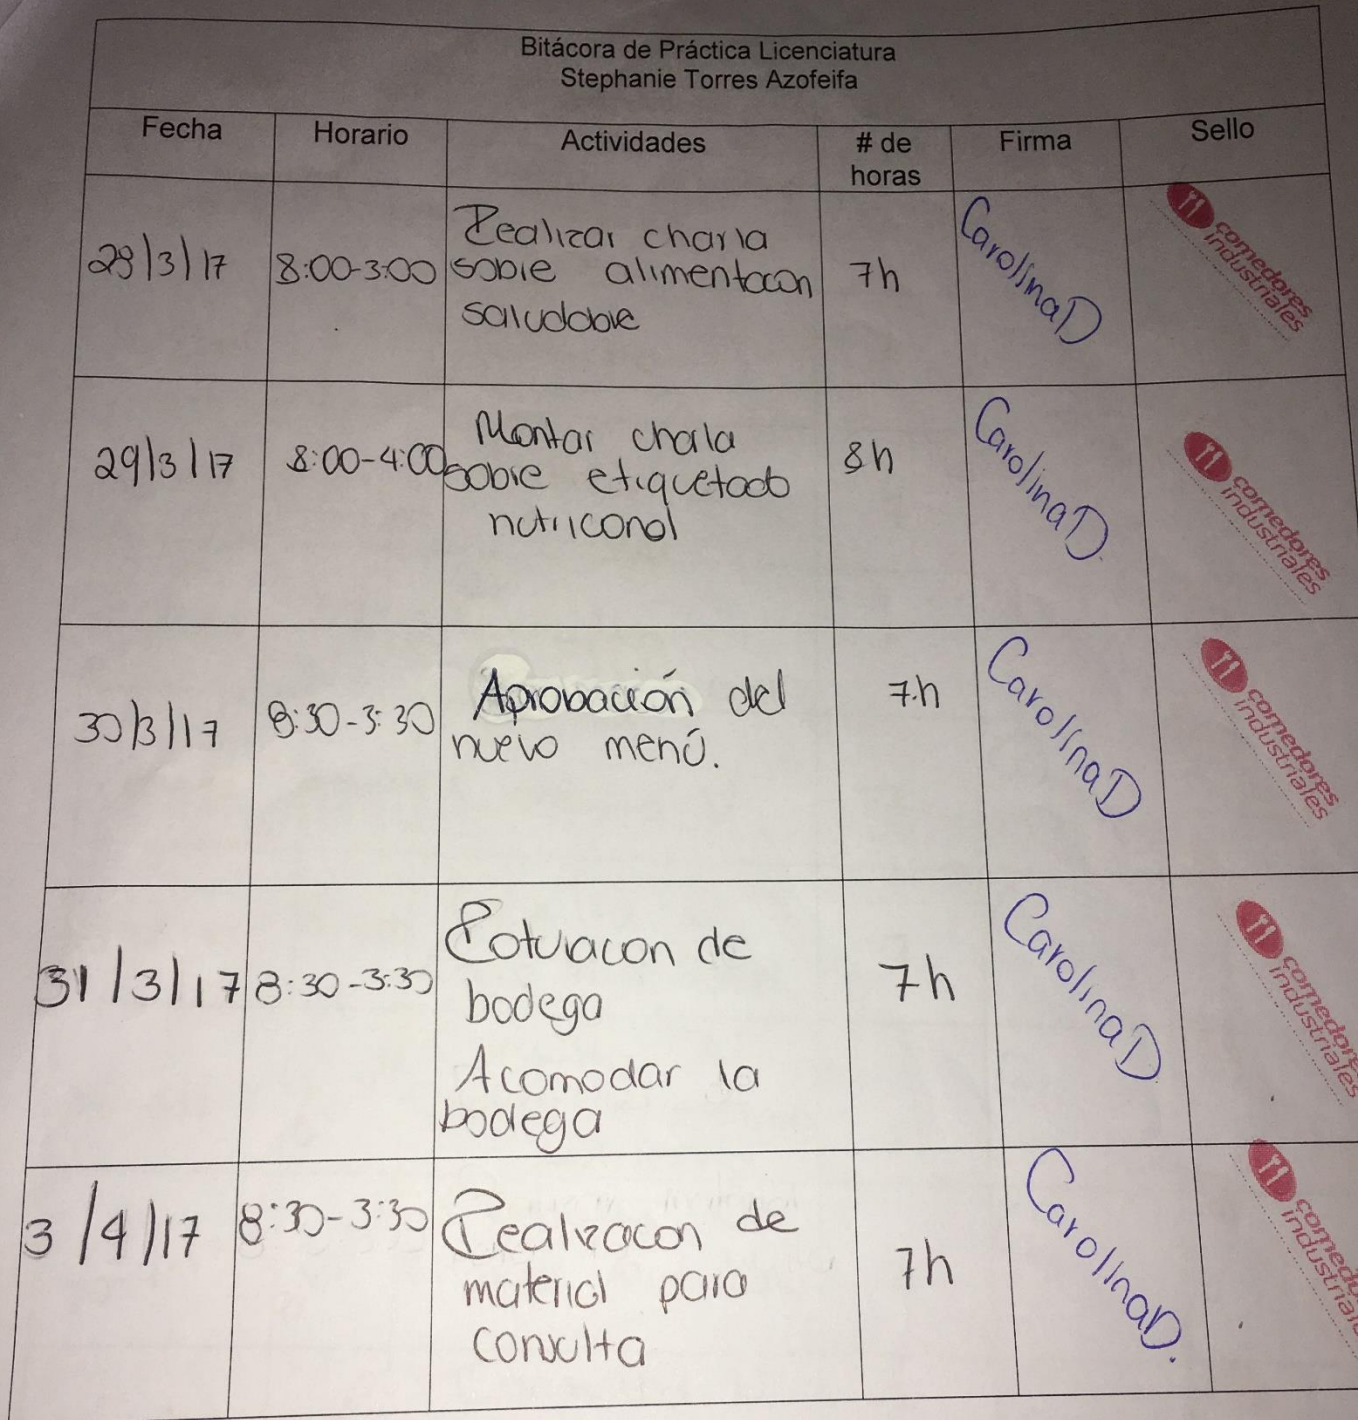 Bitácora de Práctica Licenciatura
Stephanie Torres Azofeifa
Fecha Horario Actividades # de horas Firma Sello
28/3/17 8:00-3:00 Realizar charla
sobre alimentacon
saludable
7h CarolinaD
comedores
industriales
29/3/17 8:00-4:00 Montar charla
sobre etiquetado
nutriconal
8h CarolinaD
comedores
industriales
30/3/17 8:30-3:30 Aprobación del
nuevo menú.
7.h CarolinaD
comedores
industriales
31/3/17 8:30-3:30 Rotulacon de
bodega
Acomodar la
bodega
7h CarolinaD
comedores
industriales
3/4/17 8:30-3:30 Realizacon de
material para
consulta
7h CarolinaD.
comedo
industrial